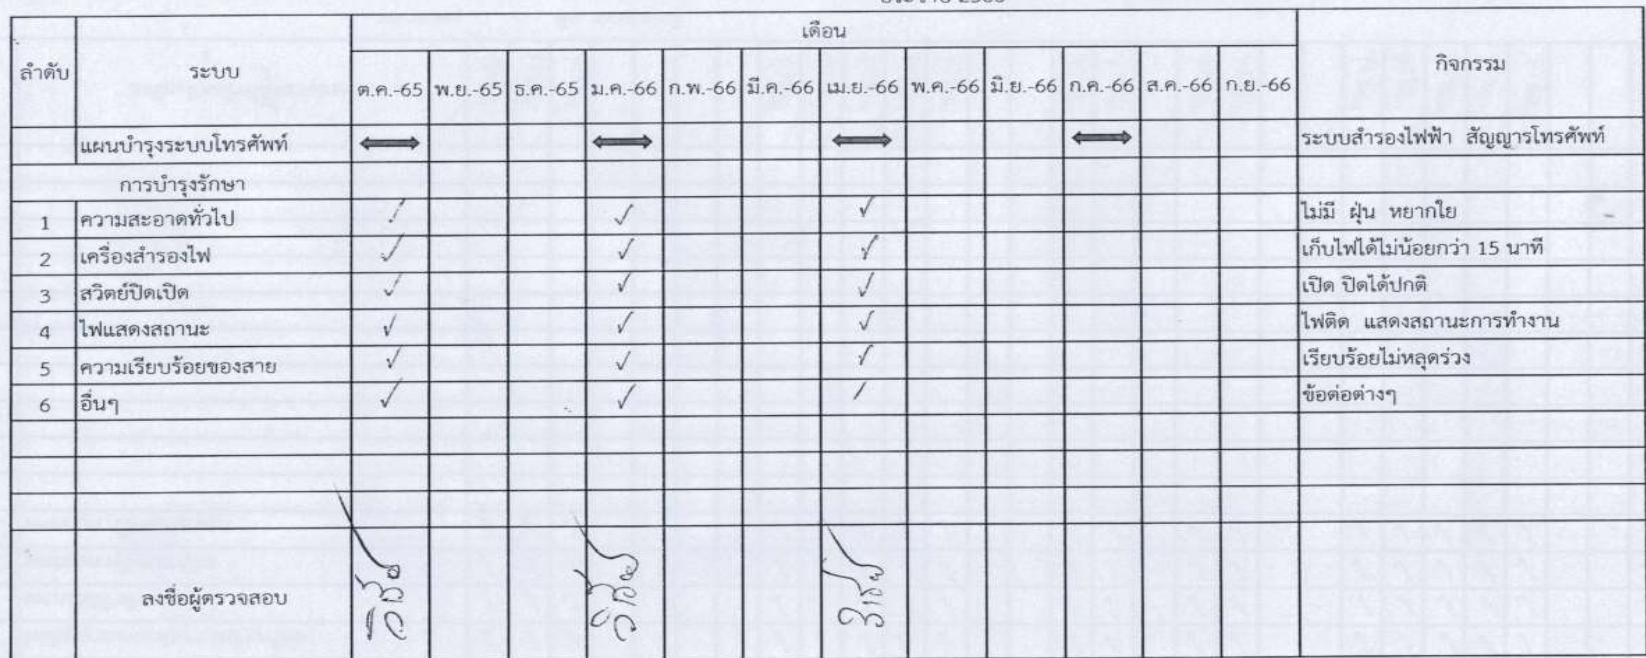 เดือน
ลำดับ ระบบ ต.ค.-65 พ.ย.-65 ธ.ค.-65 ม.ค.-66 ก.พ.-66 มี.ค.-66 เม.ย.-66 พ.ค.-66 มิ.ย.-66 ก.ค.-66 ส.ค.-66 ก.ย.-66 กิจกรรม
แผนบำรุงระบบโทรศัพท์ ระบบสำรองไฟฟ้า สัญญารโทรศัพท์
การบำรุงรักษา
1 ความสะอาดทั่วไป ✓ ✓ ✓ ไม่มี ฝุ่น หยากใย
2 เครื่องสำรองไฟ ✓ ✓ ✓ เก็บไฟได้ไม่น้อยกว่า 15 นาที
3 สวิตย์ปิดเปิด ✓ ✓ ✓ เปิด ปิดได้ปกติ
4 ไฟแสดงสถานะ ✓ ✓ ✓ ไฟติด แสดงสถานะการทำงาน
5 ความเรียบร้อยของสาย ✓ ✓ ✓ เรียบร้อยไม่หลุดร่วง
6 อื่นๆ ✓ ✓ ✓ ข้อต่อต่างๆ
ลงชื่อผู้ตรวจสอบ